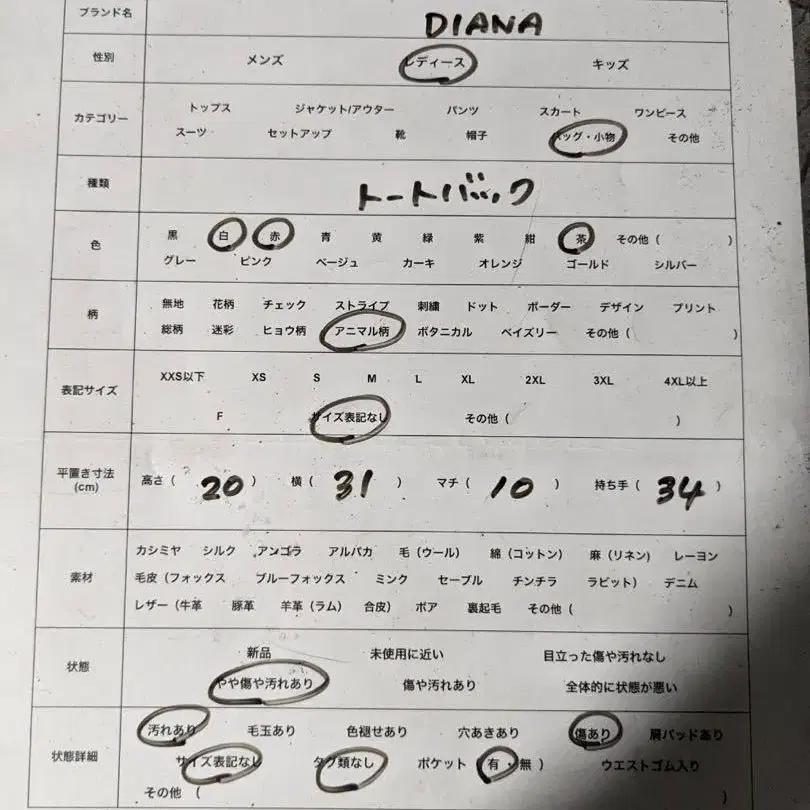 ブランド名 DIANA
性別 メンズ レディース キッズ
カテゴリー
トップス ジャケット/アウター パンツ スカート ワンピース
スーツ セットアップ 靴 帽子 バッグ・小物 その他
種類 トートバック
色
黒 白 赤 青 黄 緑 紫 紺 茶 その他 ( )
グレー ピンク ベージュ カーキ オレンジ ゴールド シルバー
柄
無地 花柄 チェック ストライプ 刺繍 ドット ボーダー デザイン プリント
総柄 迷彩 ヒョウ柄 アニマル柄 ボタニカル ペイズリー その他 ( )
表記サイズ
XXS以下 XS S M L XL 2XL 3XL 4XL以上
F サイズ表記なし その他 ( )
平置き寸法
(cm)
高さ ( 20 ) 横 ( 31 ) マチ ( 10 ) 持ち手 ( 34 )
素材
カシミヤ シルク アンゴラ アルパカ 毛 (ウール) 綿 (コットン) 麻 (リネン) レーヨン
毛皮 (フォックス ブルーフォックス ミンク セーブル チンチラ ラビット) デニム
レザー (牛革 豚革 羊革 (ラム) 合皮) ボア 裏起毛 その他 ( )
状態
新品 未使用に近い 目立った傷や汚れなし
やや傷や汚れあり 傷や汚れあり 全体的に状態が悪い
状態詳細
汚れあり 毛玉あり 色褪せあり 穴あきあり 傷あり 肩パッドあり
サイズ表記なし タグ類なし ポケット ( 有・無 ) ウエストゴム入り
その他 ( )